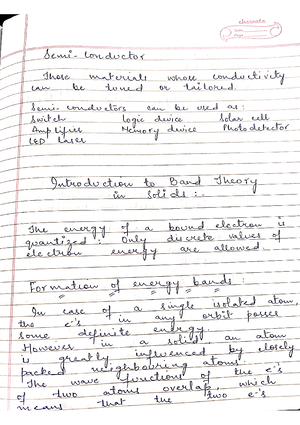 classmate
Date
Page
Semi-Conductor
Those materials whose conductivity
can be tuned or tailored.
Semi-conductors can be used as:
Switch logic device Solar cell
Amplifier Memory device Photodetector
LED laser
Introduction to Band Theory
in Solids :-
The energy of a bound electron is
quantized : Only discrete values of
electron energy are allowed.
Formation of energy bands
In case of a single isolated atom,
the e⁻'s in any orbit posses
some definite energy.
However in a solid, an atom
is greatly influenced by closely
packed neighbouring atoms.
The wave functions of the e⁻s
of two atoms overlap, which
means that the two e⁻s